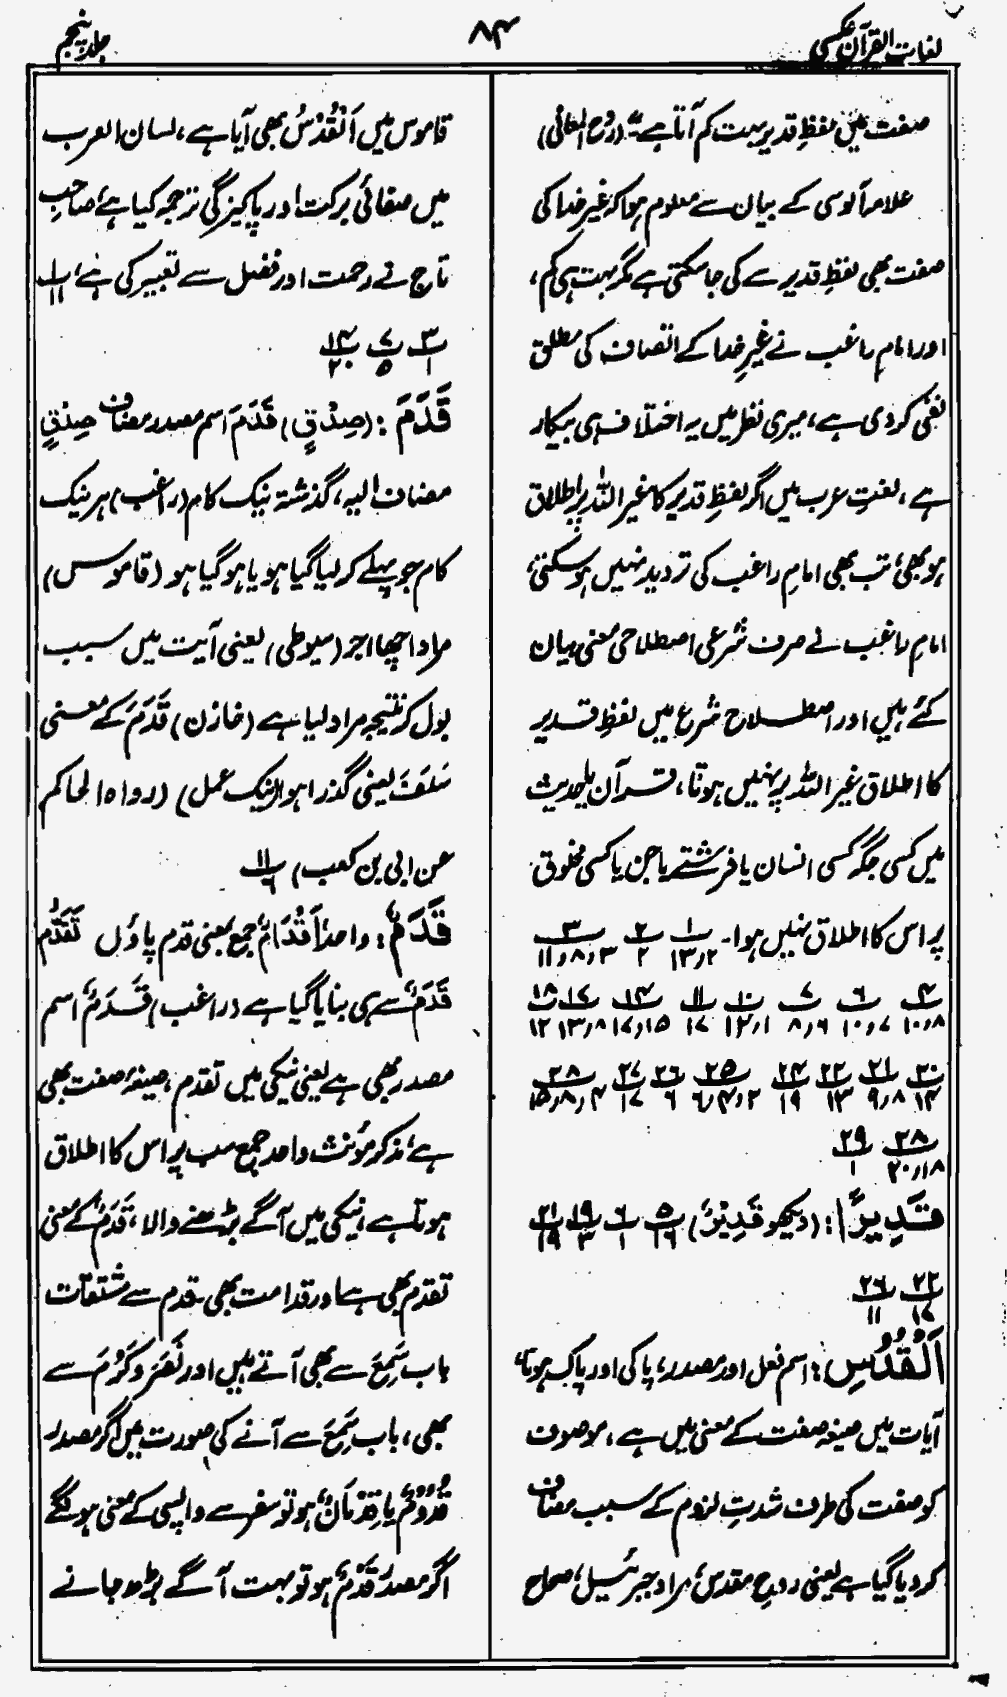 لغات القرآن عکسی
۸۴
جلد پنجم
صفت میں لفظِ قدیر بہت کم آتا ہے۔" (روح المعانی)
علامہ آلوسی کے بیان سے معلوم ہوا کہ غیر خدا کی
صفت بھی لفظِ قدیر سے کی جا سکتی ہے مگر بہت ہی کم،
اور امام راغب نے غیرِ خدا کے اتصاف کی مطلق
نفی کر دی ہے، میری نظر میں یہ اختلاف ہی بیکار
ہے، لغتِ عرب میں اگر لفظِ قدیر کا غیر اللہ پر اطلاق
ہو بھی، تب بھی امامِ راغب کی تردید نہیں ہو سکتی،
امامِ راغب نے صرف شرعی اصطلاحی معنی بیان
کئے ہیں اور اصطلاح شرع میں لفظِ قدیر
کا اطلاق غیر اللہ پر نہیں ہوتا، قرآن یا حدیث
میں کسی جگہ کسی انسان یا فرشتے یا جن یا کسی مخلوق
پر اس کا اطلاق نہیں ہوا۔ ۱/۱۳،۲ ۲/۲ ۳/۱۱،۸،۳
۴/۱۰،۸ ۶/۱۰،۷ ۷/۸،۶ ۱۰/۱۲،۱ ۱۱/۱۷ ۱۴/۱۷،۱۵ ۱۷/۱۳،۸ ۱۸/۱۲
۲۰/۱۴ ۲۱/۹،۸ ۲۲/۱۳ ۲۴/۱۹ ۲۵/۶،۴،۲ ۲۶/۶ ۲۷/۱۷ ۲۸/۱۵،۸،۴
۲۸/۲۰،۱۸ ۲۹/۱
قَدِیرًا: (دیکھو قَدِیْرٌ) ۵/۱۶ ۶/۱ ۱۹/۳ ۲۱/۱۹
۲۲/۱۷ ۲۶/۱۱
اَلْقُدُسِ: اسم فعل اور مصدر، پاکی اور پاک ہونا،
آیات میں صیغہ صفت کے معنی میں ہے، موصوف
کو صفت کی طرف شدتِ لزوم کے سبب مضاف
کر دیا گیا ہے یعنی روحِ مقدس، مراد جبرئیل، صحاح
قاموس میں اَلْقُدْسُ بھی آیا ہے، لسان العرب
میں صفائی برکت اور پاکیزگی ترجمہ کیا ہے، صاحبِ
تاج نے رحمت اور فضل سے تعبیر کی ہے، ۱/۱۱
۳/۱ ۷/۵ ۱۴/۲۰
قَدَمَ: (صِدْقٍ) قَدَمَ اسم مصدر مضاف صِدْقٍ
مضاف الیہ، گذشتہ نیک کام (راغب) ہر نیک
کام جو پہلے کر لیا گیا ہو یا ہو گیا ہو (قاموس)
مراد اچھا اجر (سیوطی) یعنی آیت میں سبب
بول کر نتیجہ مراد لیا ہے (خازن) قَدَمَ کے معنی
سَلَفَ یعنی گذرا ہوا (نیک عمل) (رواہ الحاکم
عن ابی بن کعب) ۱۱/۶
قَدَمٌ: واحد، اَقْدَامٌ جمع بمعنی قدم پاؤں تَقَدُّم
قَدَمٌ سے ہی بنایا گیا ہے (راغب) قَدَمٌ اسم
مصدر بھی ہے یعنی نیکی میں تقدم، صیغہ صفت بھی
ہے، مذکر مؤنث واحد جمع سب پر اس کا اطلاق
ہوتا ہے، نیکی میں آگے بڑھنے والا، قَدَمٌ کے معنی
تقدم بھی ہے اور قدامت بھی۔ قدم سے مشتقات
باب سَمِعَ سے بھی آتے ہیں اور نَصَرَ و کَرُمَ سے
بھی، باب سَمِعَ سے آنے کی صورت میں اگر مصدر
قُدُوْمٌ یا قِدْمَانٌ ہو تو سفر سے واپسی کے معنی ہونگے
اگر مصدر قَدْمٌ ہو تو بہت آگے بڑھ جانے